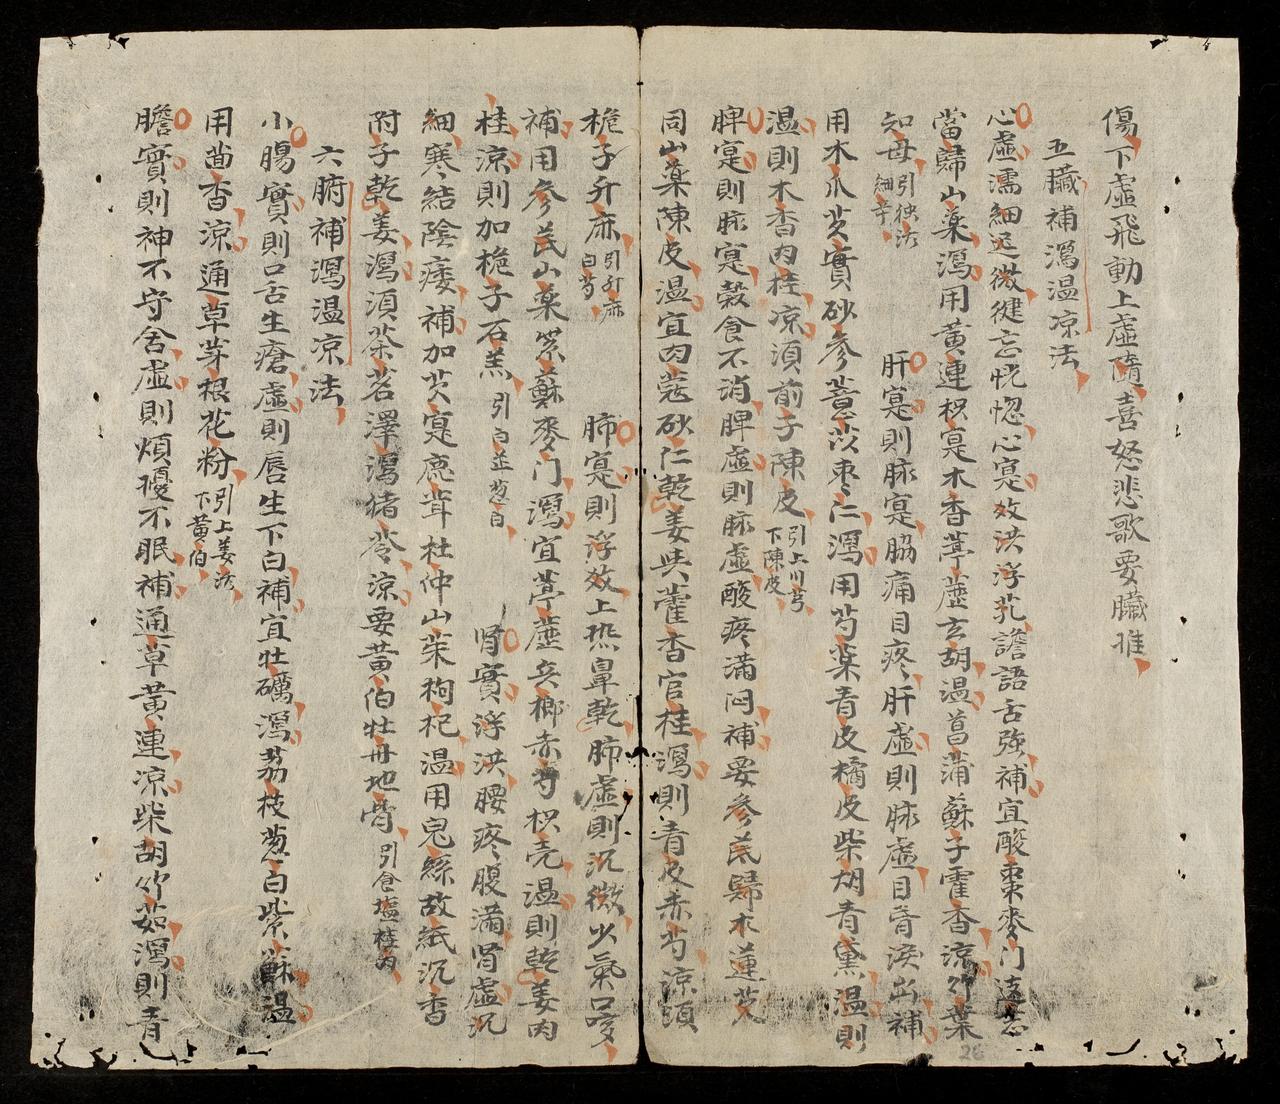 傷下虛飛動上虛隨喜怒悲歌要臟推
五臟補瀉温凉法
心虛濡細迟微徤忘恍惚心寔效洪浮芤譫語舌強補宜酸棗麥门遠志
當歸山藥瀉用黄連枳寔木香葶藶玄胡温菖蒲蘇子霍香凉竹葉
知母引独活細辛 肝寔則脉寔脇痛目疼肝虛則脉虛目昏淚出補
用木瓜芡實砂參薏苡枣仁瀉用芍藥青皮橘皮柴胡青黛温則
温則木香肉桂凉須前子陳皮引上川芎下陳皮
脾寔則脉寔穀食不消脾虛則脉虛酸疼滿闷補要參芪歸木蓮芡
同山藥陳皮温宜肉蔻砂仁乾姜與藿香官桂瀉則青皮赤芍凉須
梔子升麻引升麻白芍 肺寔則浮效上热鼻乾肺虛則沉微少氣口唆
補用參芪山藥紫蘇麥门瀉宜葶藶兵榔赤芍枳壳温則乾姜肉
桂凉則加梔子石羔引白芷葱白 腎實浮洪腰疼腹滿腎虛沉
細寒結陰痿補加芡寔鹿茸杜仲山茱枸杞温用兔絲故紙沉香
附子乾姜瀉須茶茗澤瀉猪苓凉要黄伯牡丹地骨引食塩桂肉
六腑補瀉温凉法
小腸實則口舌生瘡虛則唇生下白補宜牡礪瀉荔枝葱白紫蘇温
用茴香凉通草芽根花粉引上姜活下黄伯
膽實則神不守舍虛則煩擾不眠補通草黄連凉柴胡竹茹瀉則青
26